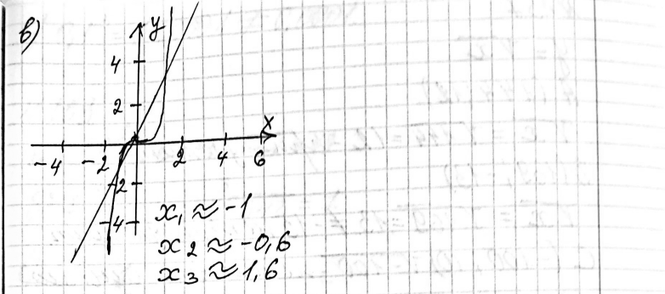 в)
y
4
2
x
-4 -2 2 4 6
-2
-4
x₁ ≈ -1
x₂ ≈ -0,6
x₃ ≈ 1,6